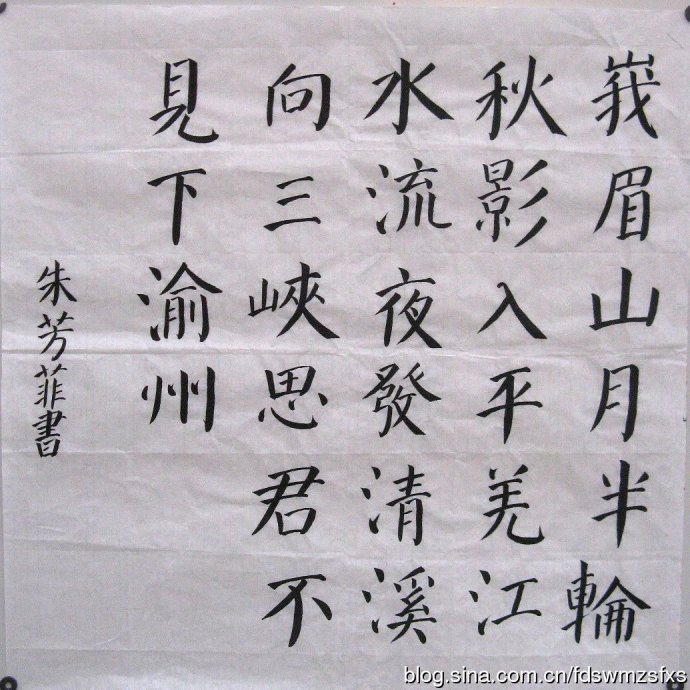 峩眉山月半輪
秋影入平羌江
水流夜發清溪
向三峽思君不
見下渝州
朱芳菲書
blog.sina.com.cn/fdswmzsfxs